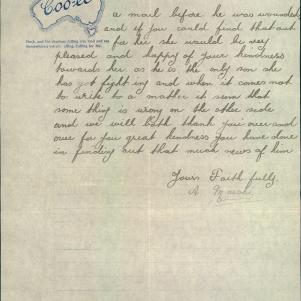 Coo-ee
a mail before he was wounded
and if you could find that out
for her she would be very
pleased and happy of your kindness
towards her as he is the only son she
has got fighting and when it comes not
to write to a mother it seem that
some thing is wrong on the other side
and we will both thank you over and
over for you great kindness you have done
in finding out that much news of him
Yours Faithfully
A